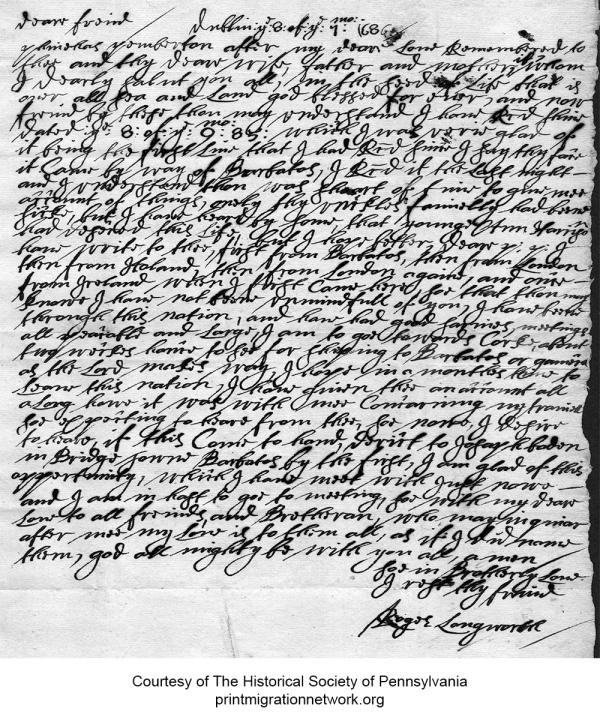 deare freind Dublin ye 8: of ye 1: mo: 1686
phinehas pemberton after my deare Love Remembered to
thee and thy deare wife, father and mother whom
I dearly salut you all, in the seed of Life that is
over all sea and Land god blessed for ever, and now
freind by these thou may understand I have Recd thine
dated ye 8: of ye 9: mo: 85: which I was verie glad of
it being the first Line that I had Recd since I say thy face
it Came by way of Barbatos, I Recd it the Last night
and I understand thou was short of time to give mee
account of things, onely thy famelly had beene
sicke, but I have heard by some, that younge
had departed this Life, but I hope better, deare p: p: I
have writt to thee, first from Barbatos, then from London
then from Holand, then from London againe, and once
from Ireland when I first Came here, soe that thou may
knowe I have not beene unmindfull of you, I have beene
through this nation, and have had good harvies, meetings
all peaceable and Large, I am to goe towards Corke, about
two weekes hence to see for shiping to Barbatos or
as the Lord makes way, I hope in a months time to
Leave this nation, I have given thee an account all
a Long howe it was with mee Concerning my travell
soe expecting to heare from thee, soe nowe, I desire
to heare, if this Come to hand, derict to
in Bridge towne Barbatos by the first, I am glad of this
oppertunity, which I have meet with Just nowe
and I am in hast to goe to meeting, soe with my deare
Love to all freinds, and Bretheran, who may inquiar
after mee my Love is to them all, as if I did name
them, god all mighty be with you all amen
soe in Brotherly Love
I rest thy freind
Roger Longworth
Courtesy of The Historical Society of Pennsylvania
printmigrationnetwork.org